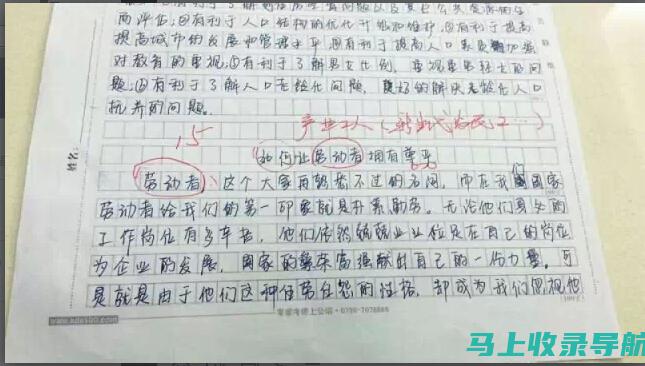 而评估;②有利于人口结构的优化升级和维护;③有利于提高
提高城市的发展和管理水平④有利于提高人口素质加强
对教育的重视;⑤有利于了解男女比例,重视重男轻女的问
题;⑥有利于了解人口老龄化问题,更好的解决老龄化人口
抚养的问题。
15
产业工人(新生代农民工…)
如何让劳动者拥有尊严
姓名:
劳动者,这个大家再熟悉不过的名词,而在我们国家
劳动者给我们的第一印象就是朴素勤劳。无论他们身处的
工作岗位有多辛苦,他们依然兢兢业业地站在自己的岗位
为企业的发展,国家的繁荣富强献出自己的一份力量。可
是就是由于他们这种任劳任怨的性格,却成为我们忽视他
马上收录导航